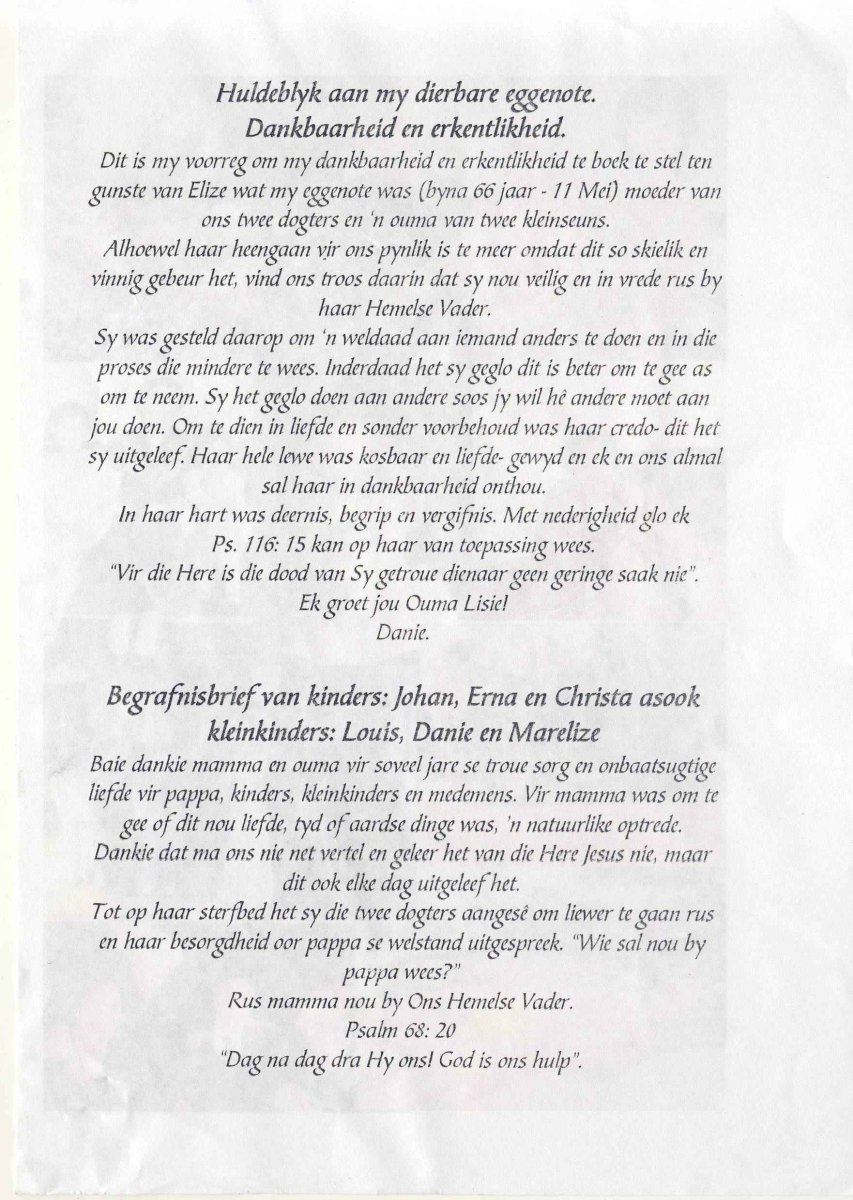 Huldeblyk aan my dierbare eggenote.
Dankbaarheid en erkentlikheid.
Dit is my voorreg om my dankbaarheid en erkentlikheid te boek te stel ten
gunste van Elize wat my eggenote was (byna 66 jaar - 11 Mei) moeder van
ons twee dogters en ‘n ouma van twee kleinseuns.
Alhoewel haar heengaan vir ons pynlik is te meer omdat dit so skielik en
vinnig gebeur het, vind ons troos daarin dat sy nou veilig en in vrede rus by
haar Hemelse Vader.
Sy was gesteld daarop om ‘n weldaad aan iemand anders te doen en in die
proses die mindere te wees. Inderdaad het sy geglo dit is beter om te gee as
om te neem. Sy het geglo doen aan andere soos jy wil hê andere moet aan
jou doen. Om te dien in liefde en sonder voorbehoud was haar credo- dit het
sy uitgeleef. Haar hele lewe was kosbaar en liefde- gewyd en ek en ons almal
sal haar in dankbaarheid onthou.
In haar hart was deernis, begrip en vergifnis. Met nederigheid glo ek
Ps. 116: 15 kan op haar van toepassing wees.
“Vir die Here is die dood van Sy getroue dienaar geen geringe saak nie”.
Ek groet jou Ouma Lisie!
Danie.
Begrafnisbrief van kinders: Johan, Erna en Christa asook
kleinkinders: Louis, Danie en Marelize
Baie dankie mamma en ouma vir soveel jare se troue sorg en onbaatsugtige
liefde vir pappa, kinders, kleinkinders en medemens. Vir mamma was om te
gee of dit nou liefde, tyd of aardse dinge was, ’n natuurlike optrede.
Dankie dat ma ons nie net vertel en geleer het van die Here Jesus nie, maar
dit ook elke dag uitgeleef het.
Tot op haar sterfbed het sy die twee dogters aangesê om liewer te gaan rus
en haar besorgdheid oor pappa se welstand uitgespreek. “Wie sal nou by
pappa wees?”
Rus mamma nou by Ons Hemelse Vader.
Psalm 68: 20
“Dag na dag dra Hy ons! God is ons hulp”.